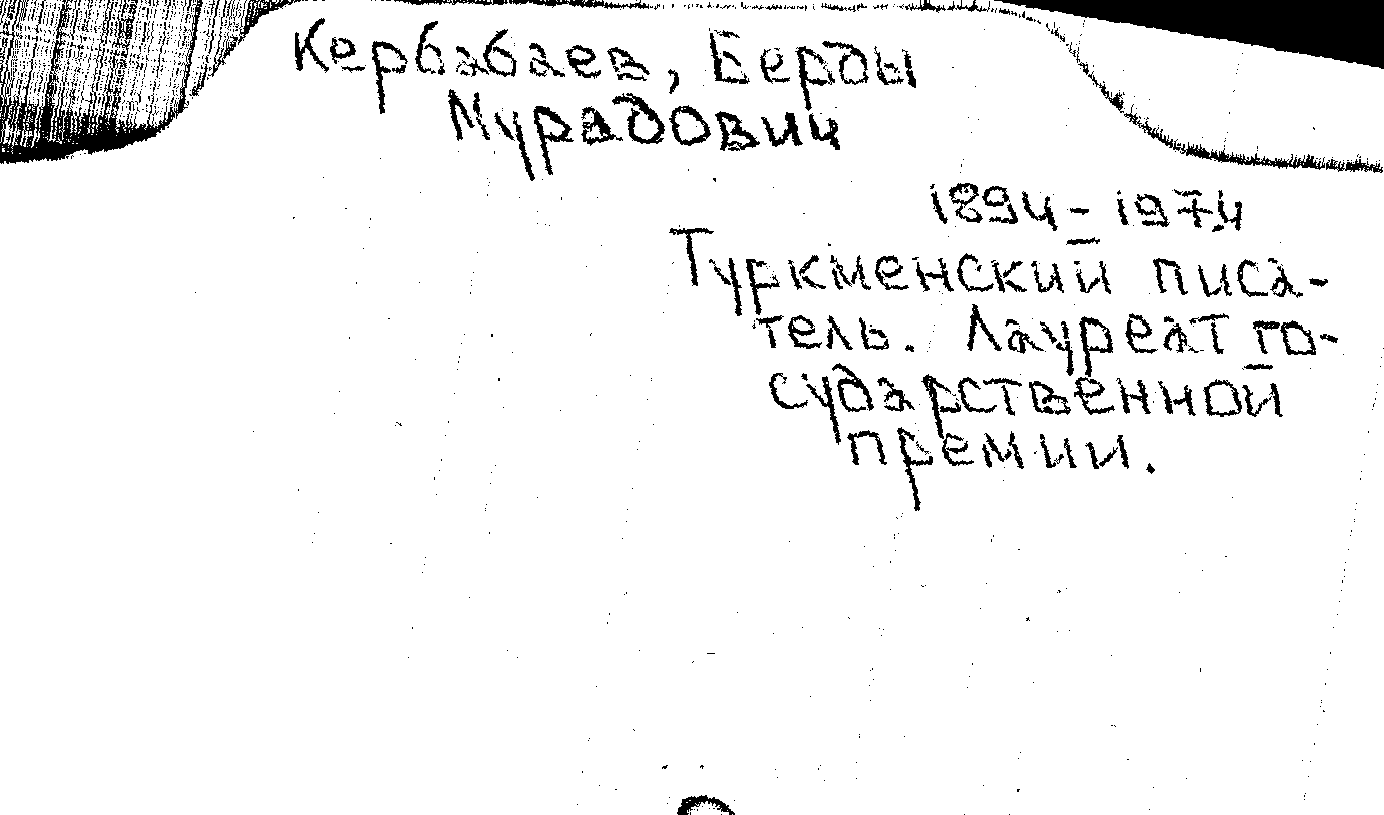 Кербабаев, Берды
Мурадович
1894-1974
Туркменский писа-
тель. Лауреат го-
сударственной
премии.